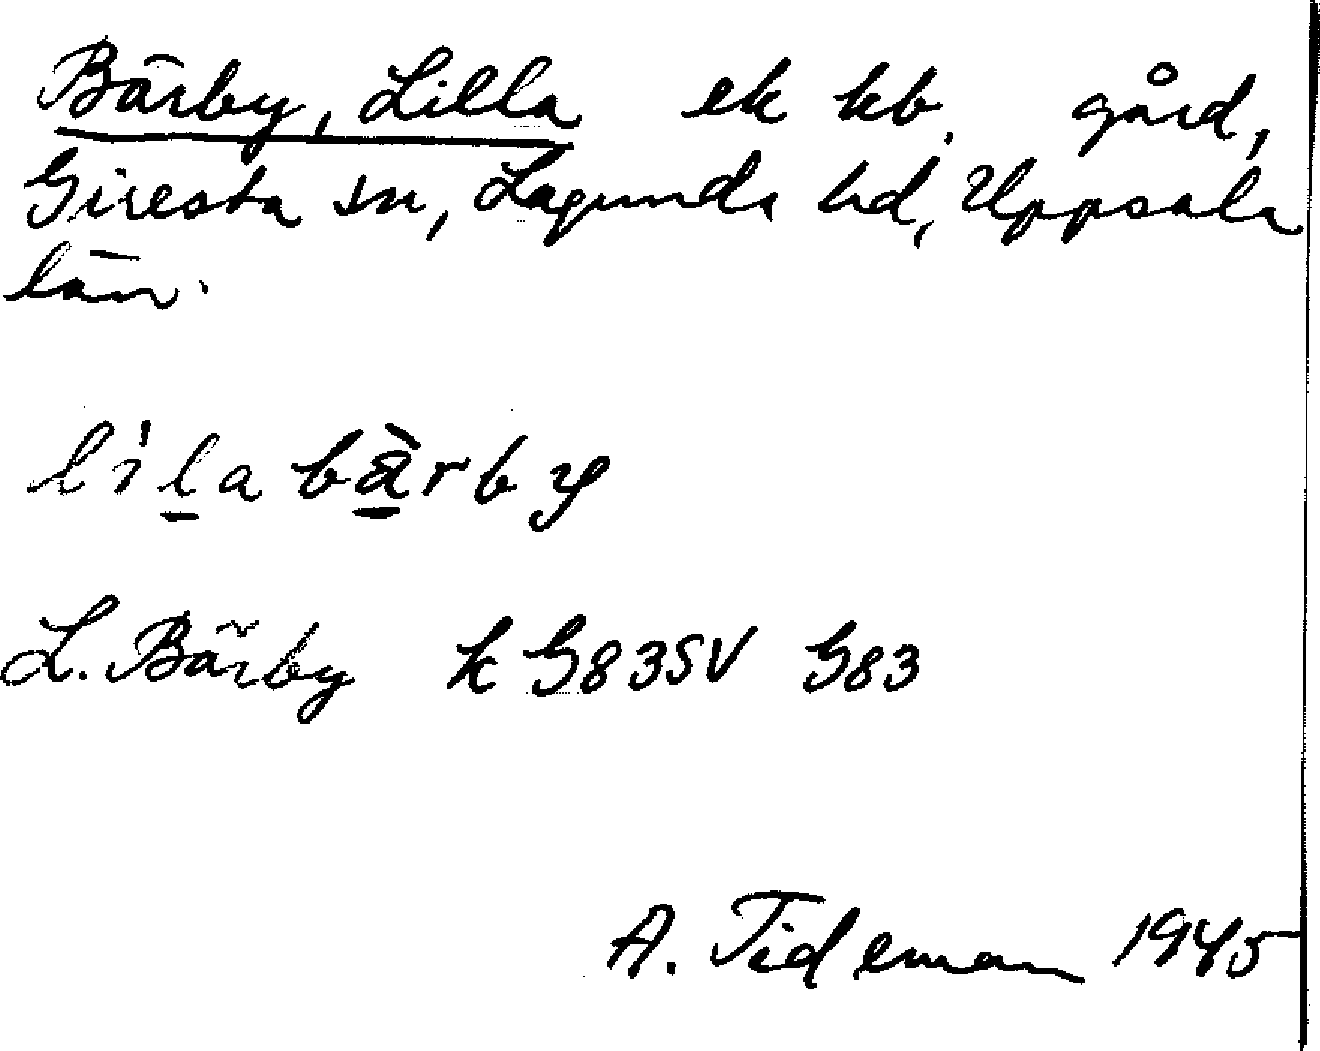 Bärby, Lilla ek kb. gård,
Giresta sn, Lagunda hd, Uppsala
län.
lìla bä̀rby
L. Bärby k G83SV G83
A. Tideman 1945